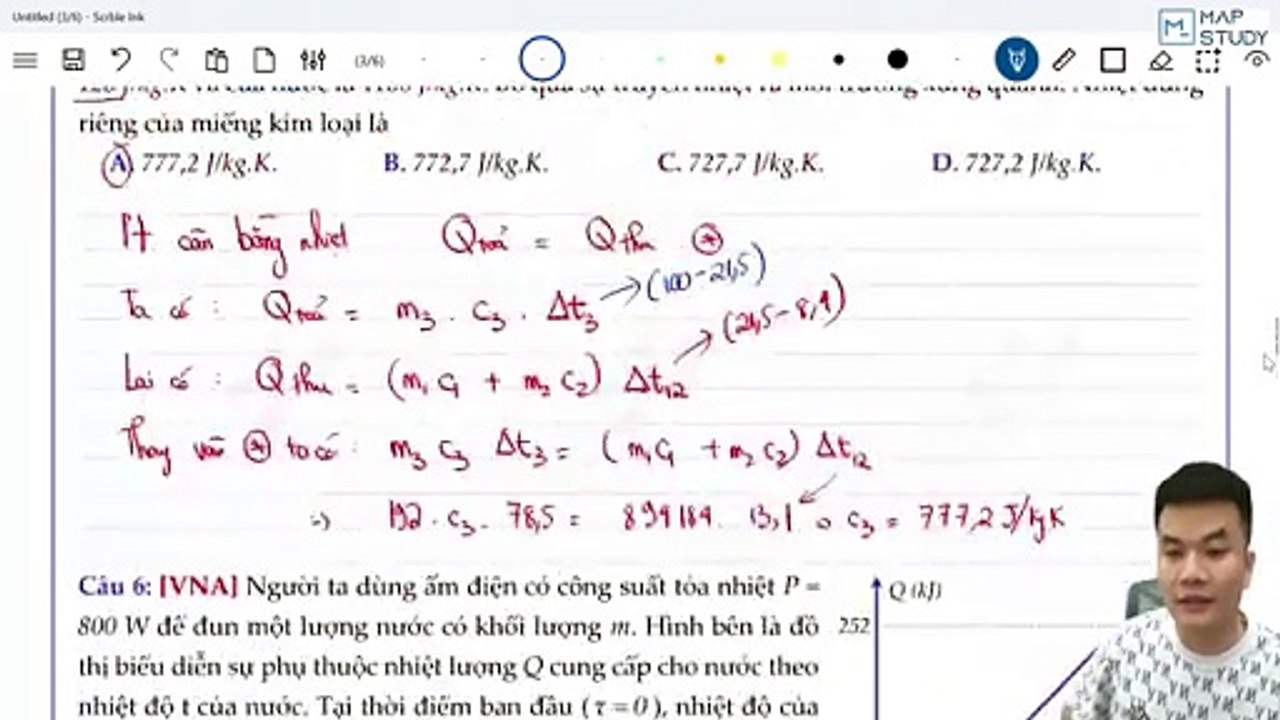 Untitled (3/6) - Scrble Ink
MAP STUDY
(3/6)
riêng của miếng kim loại là
A. 777,2 J/kg.K. B. 772,7 J/kg.K. C. 727,7 J/kg.K. D. 727,2 J/kg.K.
Pt cân bằng nhiệt Q toả = Q thu (*)
Ta có : Q toả = m₃ . c₃ . Δt₃ → (100 - 21,5)
Lại có : Q thu = (m₁ c₁ + m₂ c₂) Δt₁₂ → (21,5 - 8,4)
Thay vào (*) ta có : m₃ c₃ Δt₃ = (m₁ c₁ + m₂ c₂) Δt₁₂
=> 192 . c₃ . 78,5 = 13,1 c₃ = 777,2 J/kgK
Câu 6: [VNA] Người ta dùng ấm điện có công suất tỏa nhiệt P =
800 W để đun một lượng nước có khối lượng m. Hình bên là đồ
thị biểu diễn sự phụ thuộc nhiệt lượng Q cung cấp cho nước theo
nhiệt độ t của nước. Tại thời điểm ban đầu (τ = 0), nhiệt độ của
Q (kJ)
252